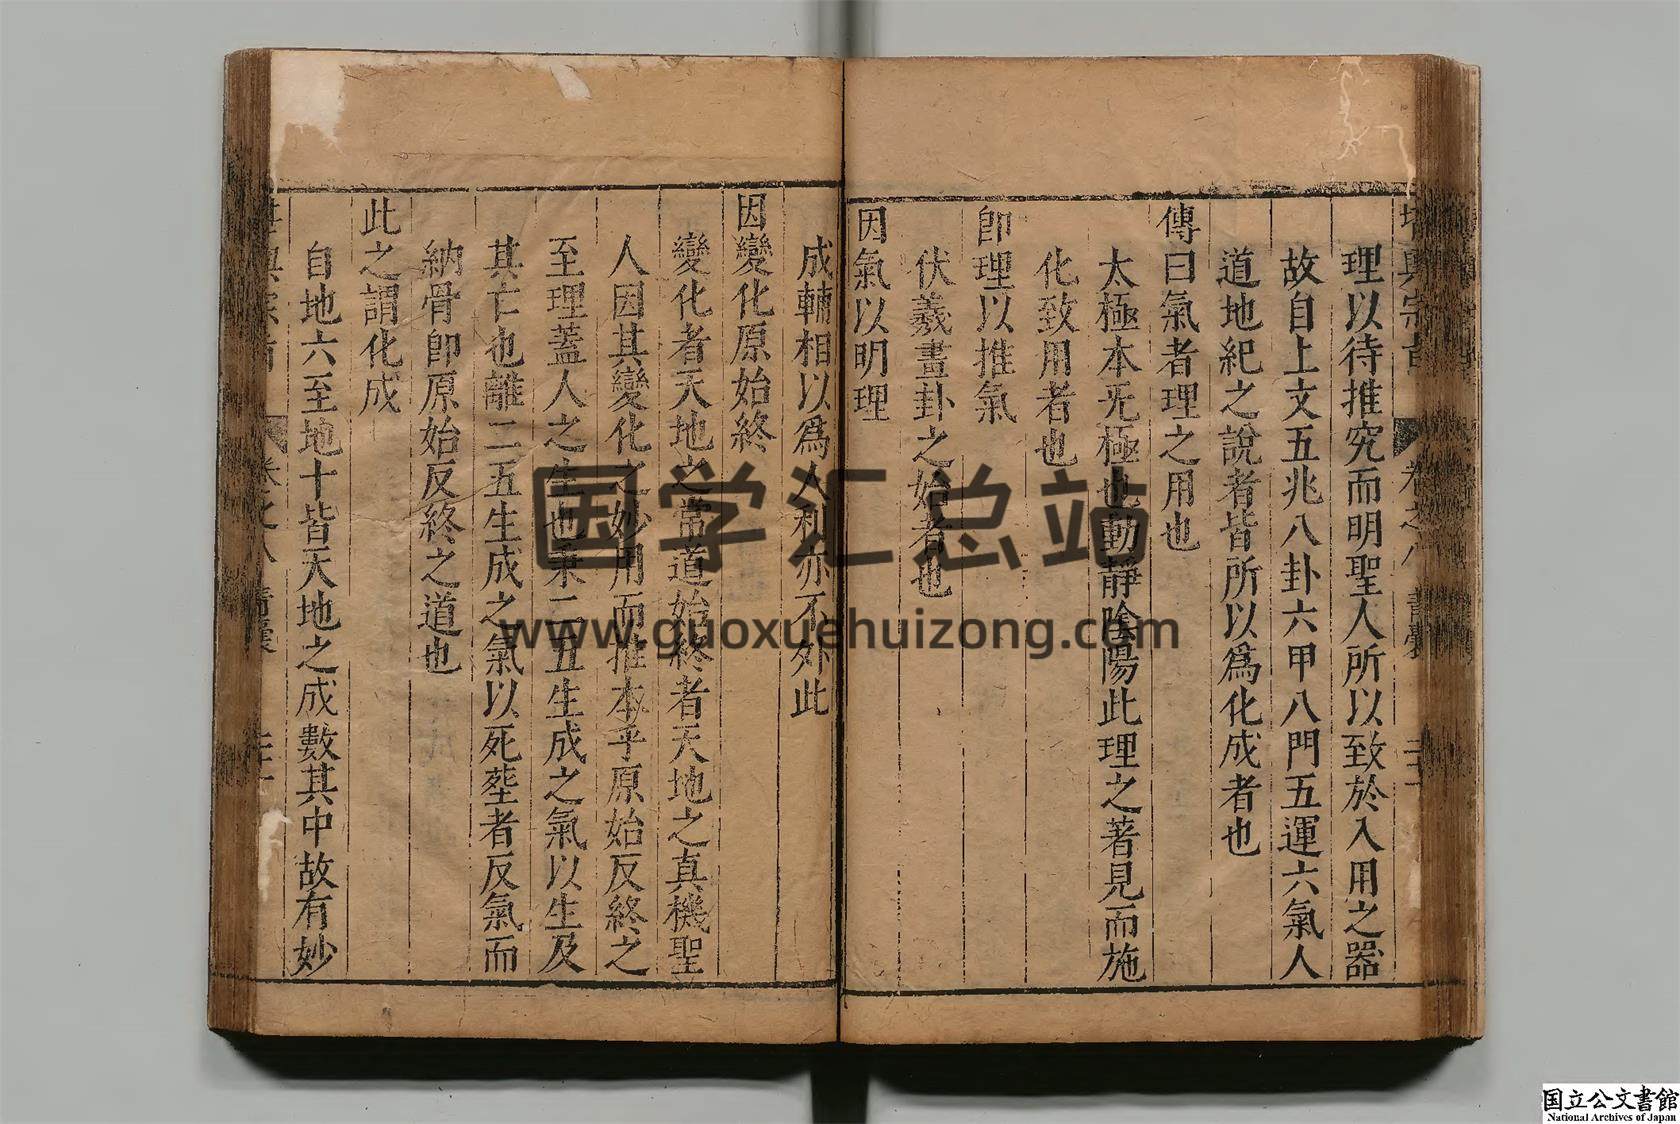 理以待推究而明聖人所以致於入用之器
故自上文五兆八卦六甲八門五運六氣人
道地紀之說者皆所以爲化成者也
傳曰氣者理之用也
太極本旡極也動靜陰陽此理之著見而施
化致用者也
即理以推氣
伏羲畫卦之始者也
因氣以明理
成輔相以爲人利亦不外此
因變化原始終
變化者天地之常道始終者天地之真機聖
人因其變化之妙用而推本乎原始反終之
至理蓋人之生也秉二五生成之氣以生及
其亡也離二五生成之氣以死塟者反氣而
納骨卽原始反終之道也
此之謂化成
自地六至地十皆天地之成數其中故有妙
卷之八
国学汇总站
www.guoxuehuizong.com
国立公文書館
National Archives of Japan